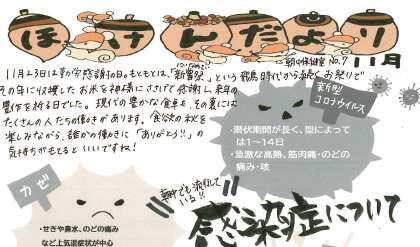 ほけんだより
朝の保健室 No.7
11月
11月23日は勤労感謝の日。もともとは、「新嘗祭」という飛鳥時代から続くお祭りで
その年に収穫したお米を神様にささげて感謝し、来年の
豊作を祈る日でした。現代の豊かな食卓も、その裏には
たくさんの人たちの働きがあります。食欲の秋を
楽しみながら、誰かの働きに「ありがとう!!」の
気持ちがもてるといいですね!
新型
コロナウイルス
・潜伏期間が長く、型によって
は1〜14日
・急激な高熱、筋肉痛・のどの
痛み・咳
カゼ
・せきや鼻水、のどの痛み
など上気道症状が中心
朝中でも流行して
いる!!
感染症について